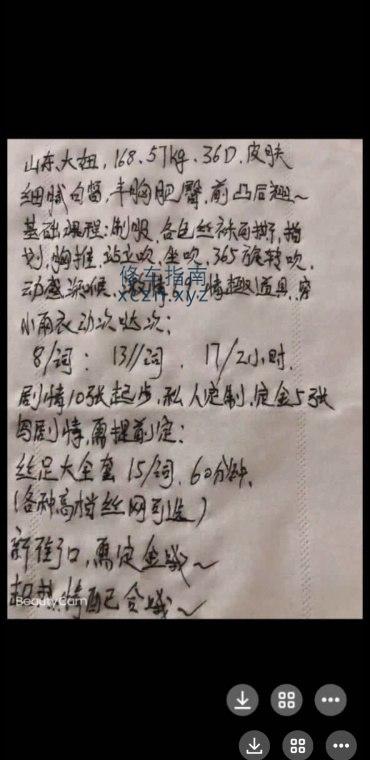 山东大妞,168.57kg.36D.皮肤
细腻白皙,丰胸肥臀,前凸后翘~
基础课程:制服,各色丝袜可撕,指
划,胸推,站立吹,坐吹,365旋转吹,
修车指南
动感深喉,激情69,情趣道具,穿
xczn.xyz
小雨衣动次哒次;
8/词; 13//词. 17/2小时.
剧情10张起步,私人定制,定金5张
另剧情,需提前定;
丝足大全套 15/词. 60分钟.
(各种高档丝网可选)
新街口,需定金哦~
哦~
BeautyCam